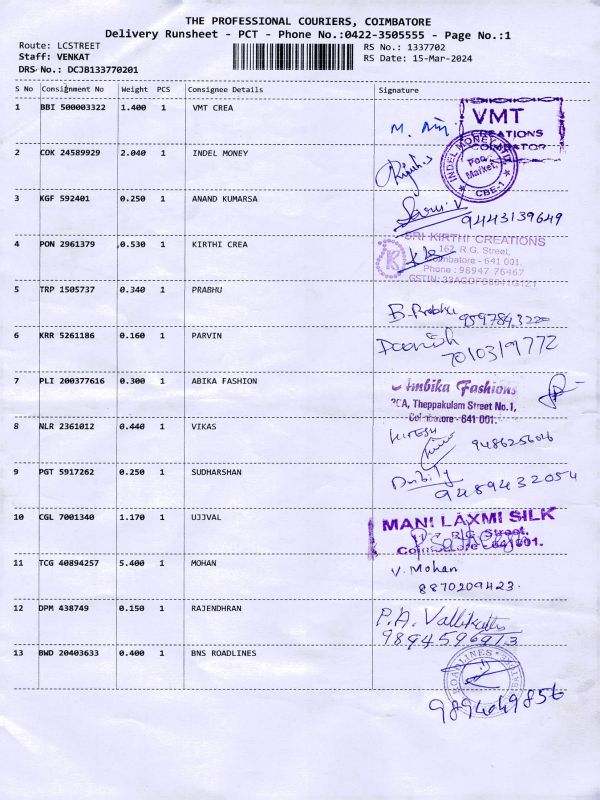 THE PROFESSIONAL COURIERS, COIMBATORE
Delivery Runsheet - PCT - Phone No.:0422-3505555 - Page No.:1
Route: LCSTREET
RS No.: 1337702
Staff: VENKAT
RS Date: 15-Mar-2024
DRS No.: DCJB133770201
S No Consignment No Weight PCS Consignee Details Signature
1 BBI 500003322 1.400 1 VMT CREA
VMT
CREATIONS
COIMBATORE
2 COK 24589929 2.040 1 INDEL MONEY
INDEL MONEY
Poo
Market,
CBE-1
3 KGF 592401 0.250 1 ANAND KUMARSA
9443139649
4 PON 2961379 0.530 1 KIRTHI CREA
SRI KIRTHI CREATIONS
162, R.G. Street,
Coimbatore - 641 001.
Phone : 98947 76467
5 TRP 1505737 0.340 1 PRABHU
B. Prabhu 9597843220
6 KRR 5261186 0.160 1 PARVIN
7 PLI 200377616 0.300 1 ABIKA FASHION
Ambika Fashions
Theppakulam Street No.1,
Coimbatore - 641 001.
8 NLR 2361012 0.440 1 VIKAS
9 PGT 5917262 0.250 1 SUDHARSHAN
9489432054
10 CGL 7001340 1.170 1 UJJVAL
MANI LAXMI SILK
R.G. Street,
Coimbatore - 641 001.
11 TCG 40894257 5.400 1 MOHAN
V. Mohan
8870209423
12 DPM 438749 0.150 1 RAJENDHRAN
P.A.
9894596913
13 BWD 20403633 0.400 1 BNS ROADLINES
ROADLINES
9894649856